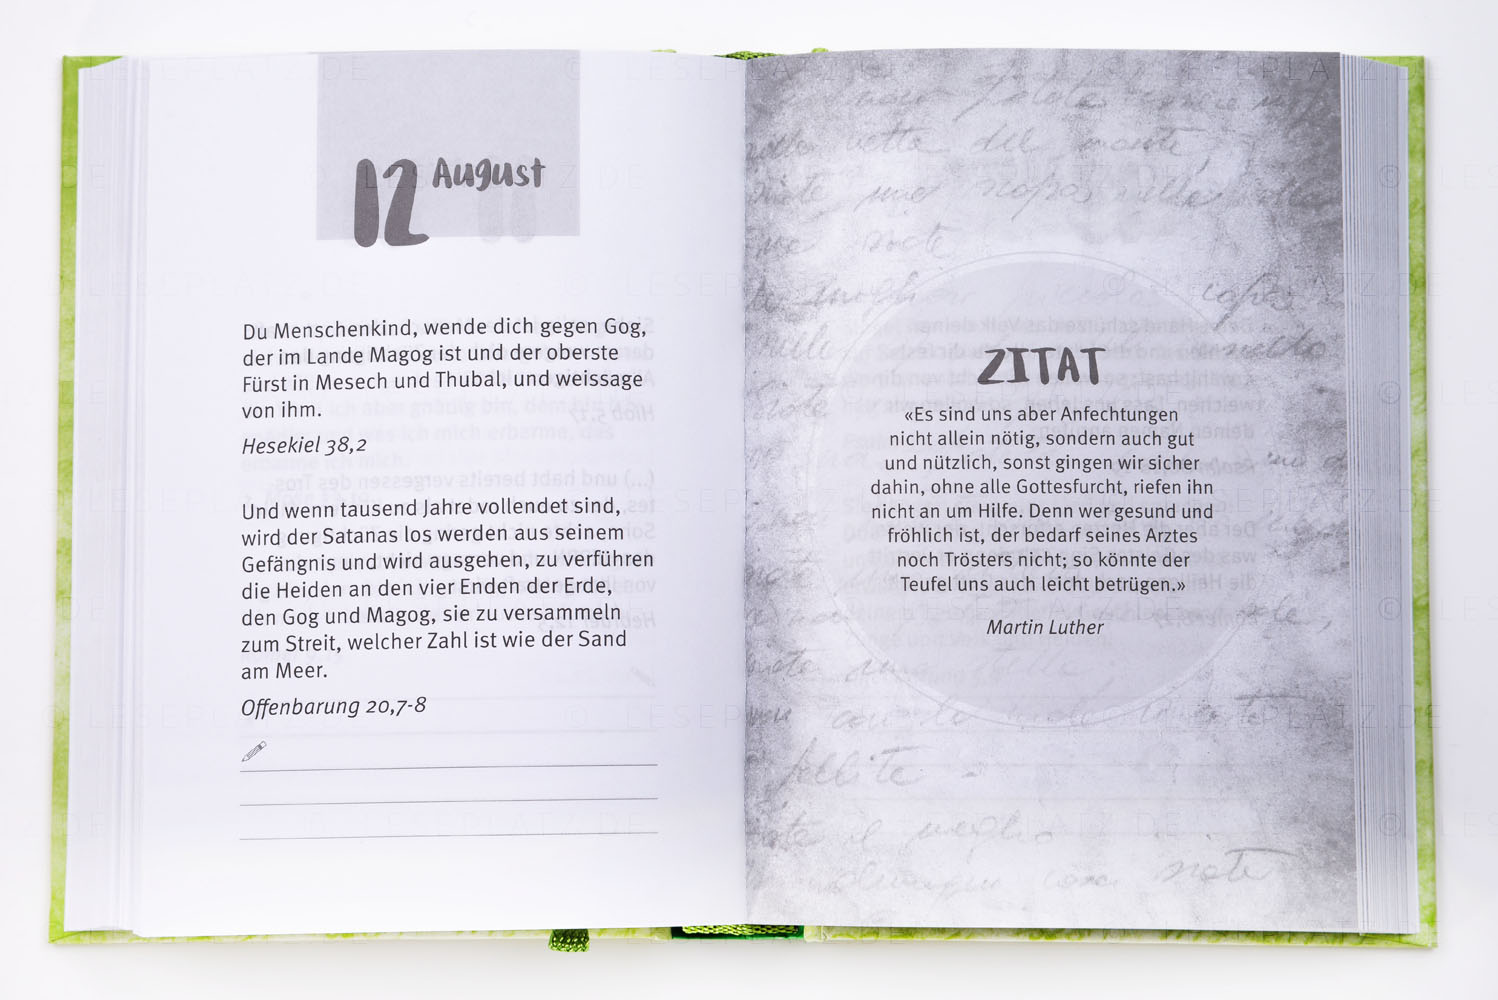 12 August
Du Menschenkind, wende dich gegen Gog,
der im Lande Magog ist und der oberste
Fürst in Mesech und Thubal, und weissage
von ihm.
Hesekiel 38,2
Und wenn tausend Jahre vollendet sind,
wird der Satanas los werden aus seinem
Gefängnis und wird ausgehen, zu verführen
die Heiden an den vier Enden der Erde,
den Gog und Magog, sie zu versammeln
zum Streit, welcher Zahl ist wie der Sand
am Meer.
Offenbarung 20,7-8
ZITAT
«Es sind uns aber Anfechtungen
nicht allein nötig, sondern auch gut
und nützlich, sonst gingen wir sicher
dahin, ohne alle Gottesfurcht, riefen ihn
nicht an um Hilfe. Denn wer gesund und
fröhlich ist, der bedarf seines Arztes
noch Trösters nicht; so könnte der
Teufel uns auch leicht betrügen.»
Martin Luther
© LESEPLATZ.DE